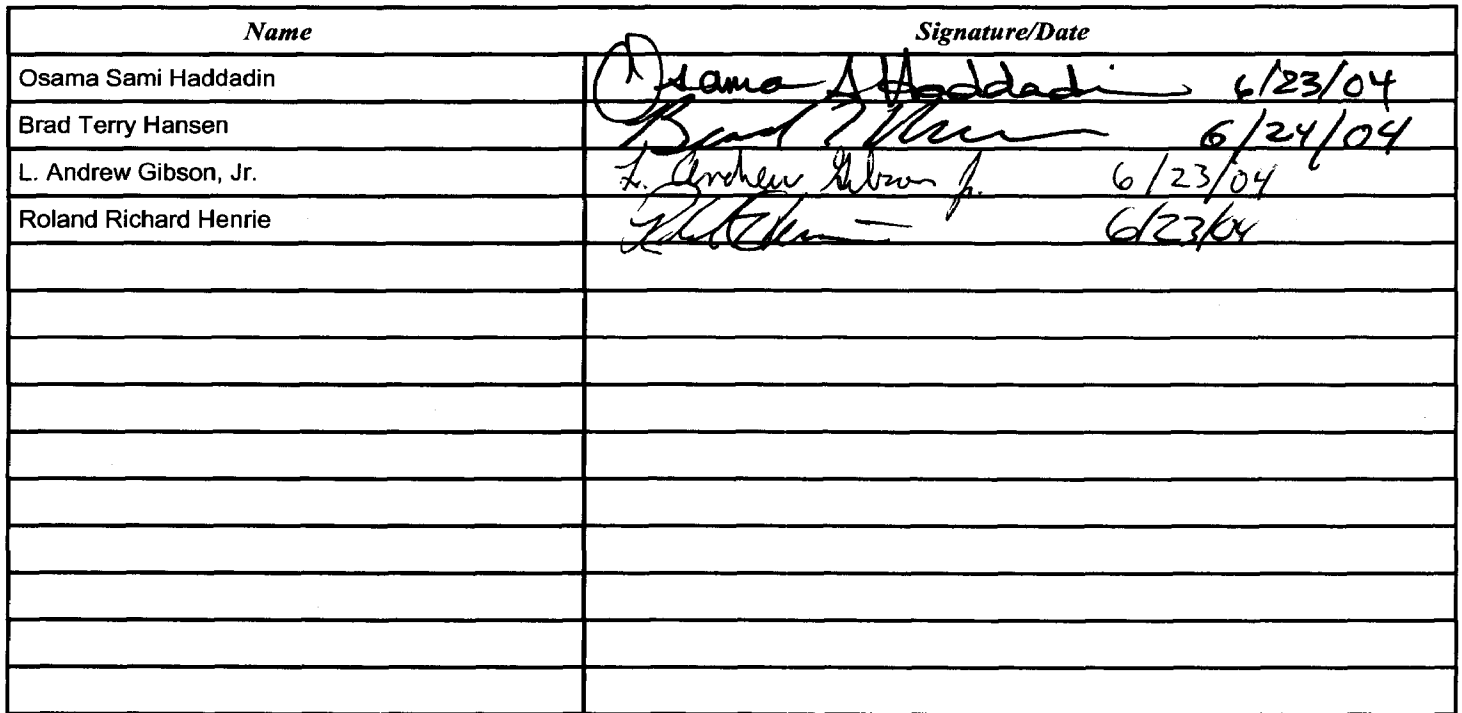 Name Signature/Date
Osama Sami Haddadin Osama S Haddadin 6/23/04
Brad Terry Hansen Brad T Hansen 6/24/04
L. Andrew Gibson, Jr. L. Andrew Gibson Jr. 6/23/04
Roland Richard Henrie 6/23/04